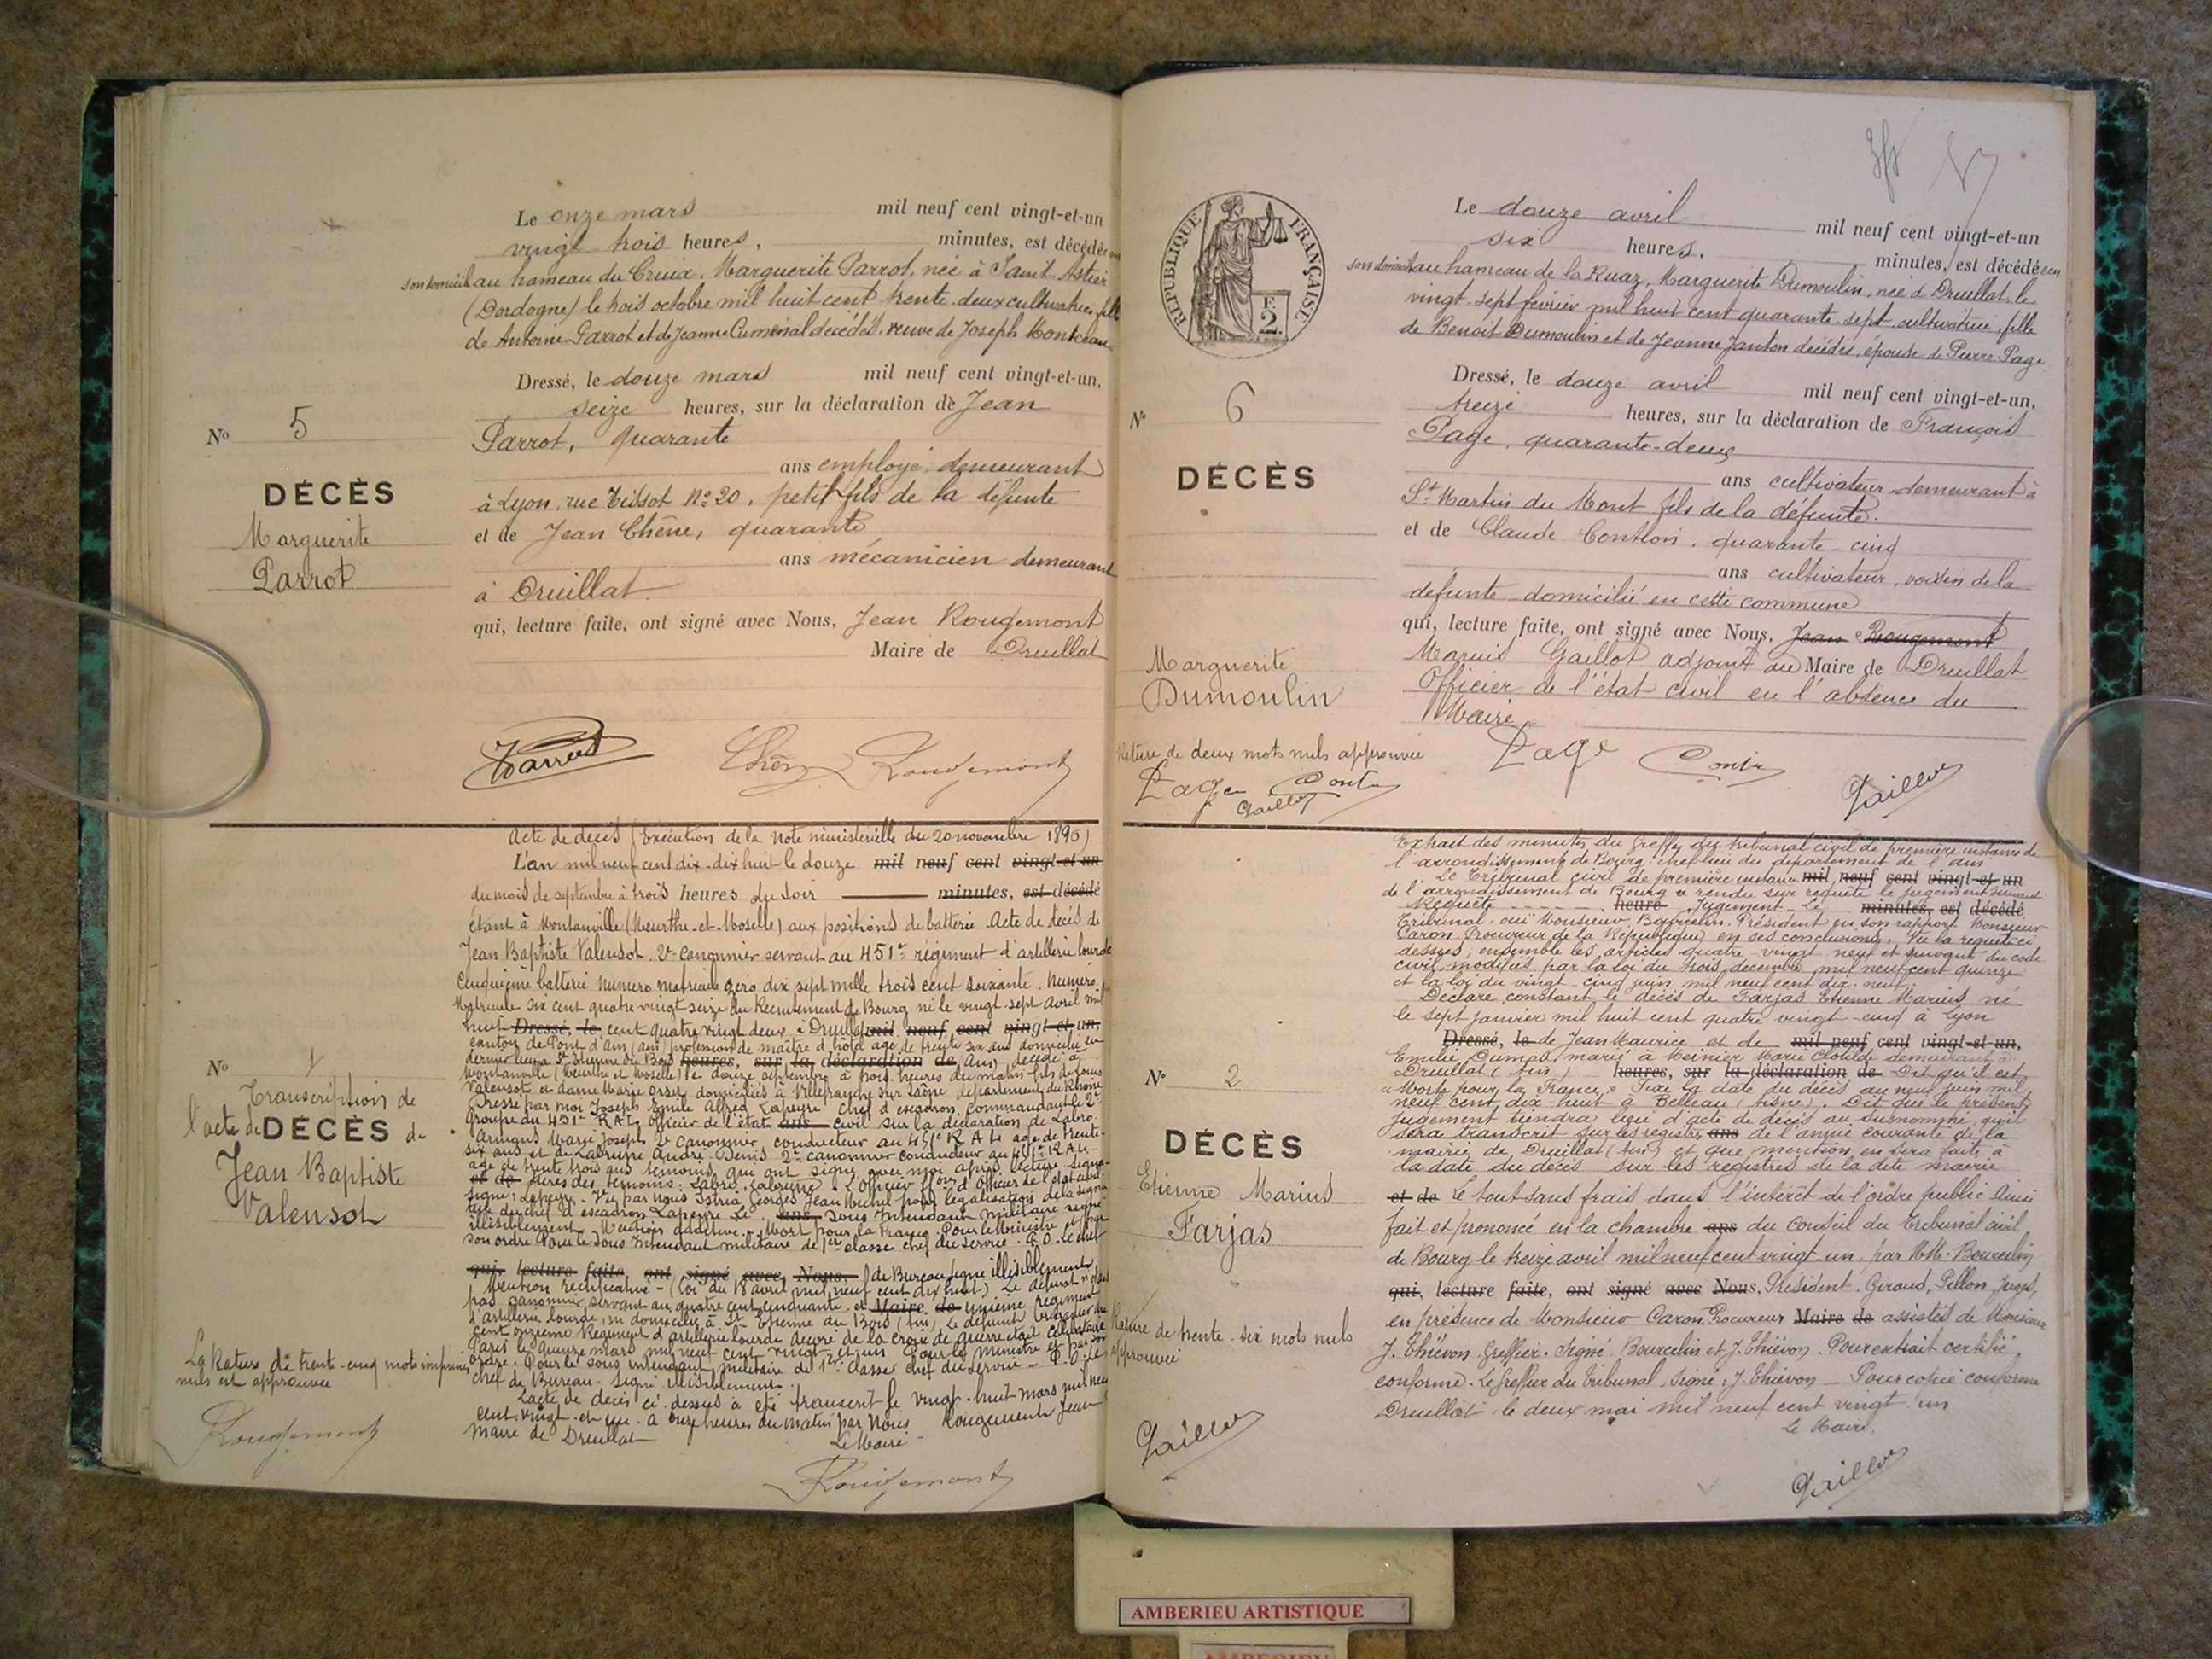 Le onze mars mil neuf cent vingt-et-un
vingt trois heures, minutes, est décédée en
son domicile au hameau du Cruix, Marguerite Parrot, née à Saint Astier
(Dordogne) le trois octobre mil huit cent trente-deux cultivatrice, fille
de Antoine Parrot et de Jeanne Cumenal décédés, veuve de Joseph Montceau
Dressé, le douze mars mil neuf cent vingt-et-un,
seize heures, sur la déclaration de Jean
Parrot, quarante
ans employé, demeurant
à Lyon, rue Tissot No 20, petit fils de la défunte
et de Jean Chêne, quarante
ans mécanicien demeurant
à Druillat
qui, lecture faite, ont signé avec Nous, Jean Rougemont
Maire de Druillat
No 5
DÉCÈS
Marguerite
Parrot
Parrot Chêne Rougemont
Acte de décès (Exécution de la Note ministérielle du 20 novembre 1890)
L'an mil neuf cent dix-dix huit le douze mil neuf cent vingt-et-un
du mois de septembre à trois heures du soir minutes, est décédé
étant à Montauville (Meurthe-et-Moselle) aux positions de batterie. Acte de décès de
Jean Baptiste Valensot. 2e canonnier servant au 451e régiment d'artillerie lourde
Cinquième batterie Numéro matricule zéro dix sept mille trois cent soixante. Numéro
Matricule six cent quatre vingt seize du Recrutement de Bourg né le vingt-sept avril mil
huit Dressé, le cent quatre vingt deux à Druillat mil neuf cent vingt-et-un,
canton de Pont d'Ain (Ain) profession de maître d'hôtel agé de trente six ans domicilié en
dernier lieu à St Etienne du Bois heures, sur la déclaration de (Ain) décédé à
Montauville (Meurthe et Moselle) le douze septembre à trois heures du matin fils de
Valensot et dame Marie domiciliés à Villefranche sur Saône département du Rhône
Dressé par moi Joseph Emile Alfred Lapeyre chef d'escadron Commandant le 2e
Groupe du 451e R A L, Officier de l'état ans civil sur la déclaration de Labro
Armand Marie Joseph 2e canonnier conducteur au 451e R A L agé de trente-
six ans et de Labrune André Denis 2e canonnier conducteur au 451e R.A.L.
agé de trente trois ans témoins qui ont signé avec moi après lecture. Signa-
et de tures des témoins: Labro, Labrune. L'Officier d'état civil
signé: Lapeyre. Vu par nous Istria Georges Jean Michel pour légalisation de la signa-
ture du chef d'escadron Lapeyre Le ans Sous Intendant militaire signé
illisiblement. Mention additive. Mort pour la France. Pour le Ministre et par
son ordre Pour le Sous Intendant militaire de 1ère classe chef du Service. P.O. Le chef
qui, lecture faite, ont signé avec Nous, de Bureau signé illisiblement
Mention rectificative - (loi du 18 avril mil neuf cent dix huit). Le défunt n'était
pas canonnier servant au quatre cent cinquante-et Maire de unième régiment
d'artillerie lourde, ni domicilié à St Etienne du Bois (Ain). Le défunt brigadier au
cent onzième Régiment d'artillerie lourde décoré de la croix de guerre était célibataire
Paris le quinze mars mil neuf cent vingt-et-un Pour le ministre et par son
ordre. Pour le sous intendant militaire de 1ère classe chef du Service - P.O. Le
chef de Bureau. Signé illisiblement.
L'acte de décès ci-dessus a été transcrit le vingt-huit mars mil neuf
cent vingt-et-un à onze heures du matin par Nous Rougemont Jean
Maire de Druillat
Le Maire
Rougemont
No 1
Transcription de
l'acte de DÉCÈS de
Jean Baptiste
Valensot
La Rature de trente-cinq mots imprimés
nuls est approuvée
Rougemont
3fr 57
RÉPUBLIQUE FRANÇAISE
F. 2.
Le douze avril mil neuf cent vingt-et-un
six heures, minutes, est décédée en
son domicile au hameau de la Ruaz, Marguerite Dumoulin, née à Druillat le
vingt-sept février mil huit cent quarante-sept, cultivatrice, fille
de Benoît Dumoulin et de Jeanne Janton décédés, épouse de Pierre Page
Dressé, le douze avril mil neuf cent vingt-et-un,
treize heures, sur la déclaration de François
Page, quarante-deux
ans cultivateur demeurant à
St Martin du Mont fils de la défunte.
et de Claude Conthon, quarante-cinq
ans cultivateur, voisin de la
défunte domicilié en cette commune
qui, lecture faite, ont signé avec Nous, Jean Rougemont
Marius Gaillot adjoint au Maire de Druillat
Officier de l'état civil en l'absence du
Maire
No 6
DÉCÈS
Marguerite
Dumoulin
Rature de deux mots nuls approuvée
Page Cont Gaillot
Page Cont Gaillot
Extrait des minutes du Greffe du tribunal civil de première instance de
l'arrondissement de Bourg chef-lieu du département de l'Ain
Le Tribunal civil de première instance mil neuf cent vingt-et-un
de l'arrondissement de Bourg a rendu sur requête le jugement suivant
Requête heure Jugement - Le minutes, est décédé
Tribunal - ouï Monsieur Bourcelin, Président en son rapport Monsieur
Caron Procureur de la République en ses conclusions. Vu la requête ci
dessus, ensemble les articles quatre vingt neuf et suivant du code
civil modifiés par la loi du trois décembre mil neuf cent quinze
et la loi du vingt-cinq juin mil neuf cent dix-neuf
Déclare constant le décès de Farjas Etienne Marius né
le sept janvier mil huit cent quatre vingt-cinq à Lyon
Dressé, le de Jean Maurice et de mil neuf cent vingt-et-un,
Emilie Dumas, marié à Meinier Marie Clotilde demeurant à
Druillat (Ain) heures, sur la déclaration de Dit qu'il est
"Mort pour la France" Fixe la date du décès au neuf juin mil
neuf cent dix-huit à Belleau (Aisne). Dit que le présent
jugement tiendra lieu d'acte de décès au susnommé, qu'il
sera transcrit sur les registres ans de l'année courante de la
mairie de Druillat (Ain) et que mention en sera faite à
la date du décès sur les registres de la dite mairie
et de Le tout sans frais dans l'intérêt de l'ordre public Ainsi
fait et prononcé en la chambre ans du Conseil du Tribunal civil
de Bourg le treize avril mil neuf cent vingt-un, par MM. Bourcelin
qui, lecture faite, ont signé avec Nous, Président, Giraud, Pillon, Juges,
en présence de Monsieur Caron Procureur Maire de assistés de Monsieur
J. Thiévon Greffier. Signé: Bourcelin et J. Thiévon. Pour extrait certifié
conforme. Le greffier du Tribunal, Signé: J. Thiévon - Pour copie conforme
Druillat le deux mai mil neuf cent vingt-un
Le Maire,
Gaillot
No 2
DÉCÈS
Etienne Marius
Farjas
Rature de trente-six mots nuls
approuvée
Gaillot
AMBERIEU ARTISTIQUE
AMBERIEU